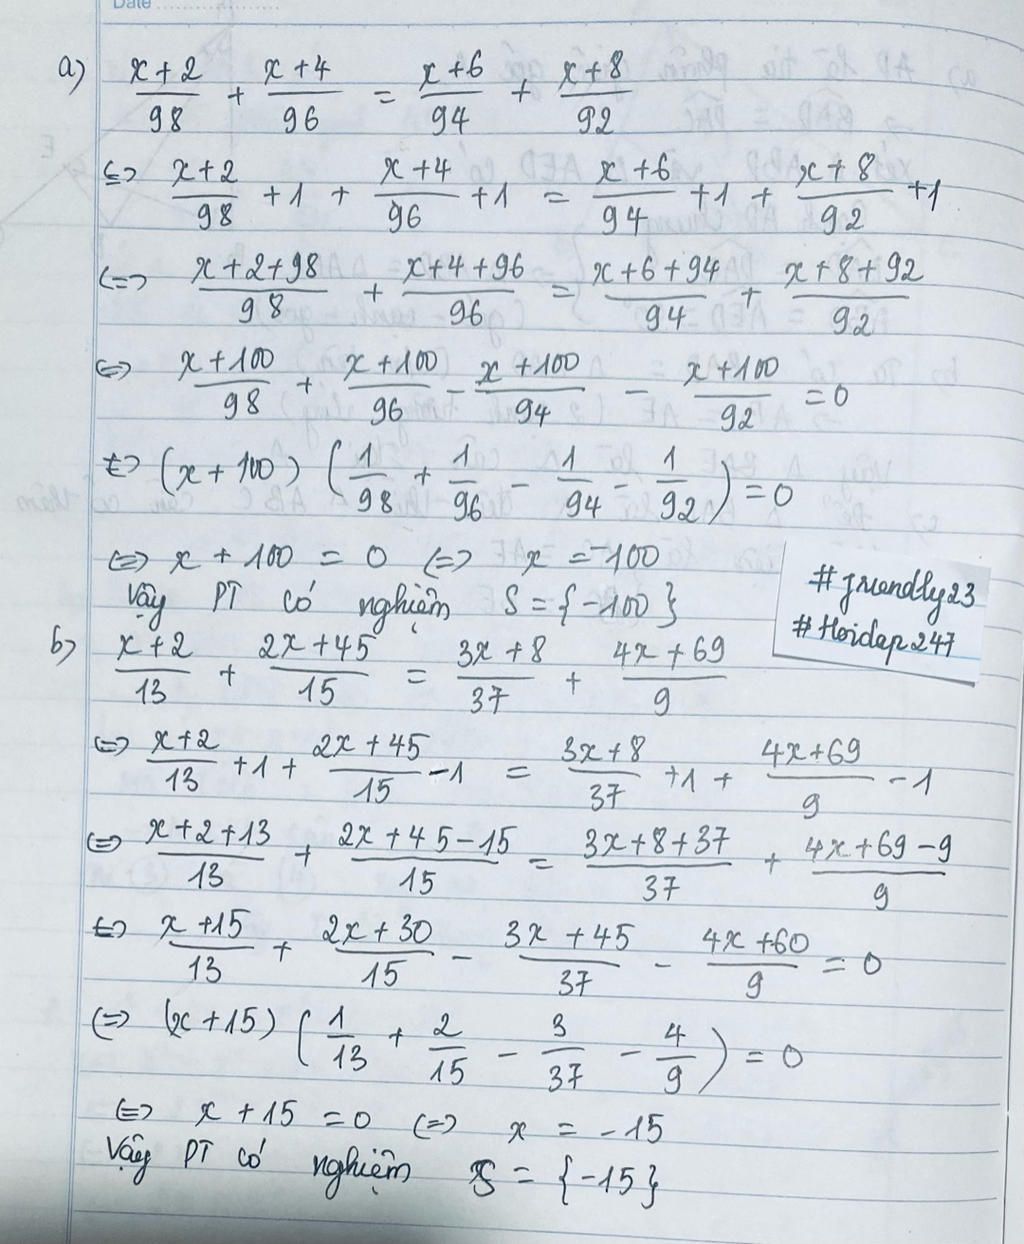 Date
a) x+2/98 + x+4/96 = x+6/94 + x+8/92
<=> x+2/98 +1 + x+4/96 +1 = x+6/94 +1 + x+8/92 +1
<=> x+2+98/98 + x+4+96/96 = x+6+94/94 + x+8+92/92
<=> x+100/98 + x+100/96 - x+100/94 - x+100/92 = 0
<=> (x+100) (1/98 + 1/96 - 1/94 - 1/92) = 0
<=> x + 100 = 0 <=> x = -100
Vậy PT có nghiệm S = {-100}
#friendly23
#Hoidap247
b) x+2/13 + 2x+45/15 = 3x+8/37 + 4x+69/9
<=> x+2/13 +1 + 2x+45/15 -1 = 3x+8/37 +1 + 4x+69/9 -1
<=> x+2+13/13 + 2x+45-15/15 = 3x+8+37/37 + 4x+69-9/9
<=> x+15/13 + 2x+30/15 - 3x+45/37 - 4x+60/9 = 0
<=> (x+15) (1/13 + 2/15 - 3/37 - 4/9) = 0
<=> x + 15 = 0 <=> x = -15
Vậy PT có nghiệm S = {-15}